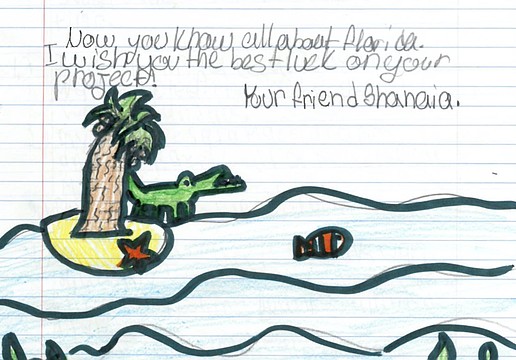 Now you know all about Florida.
I wish you the best luck on your
project!
Your friend Shanaia.